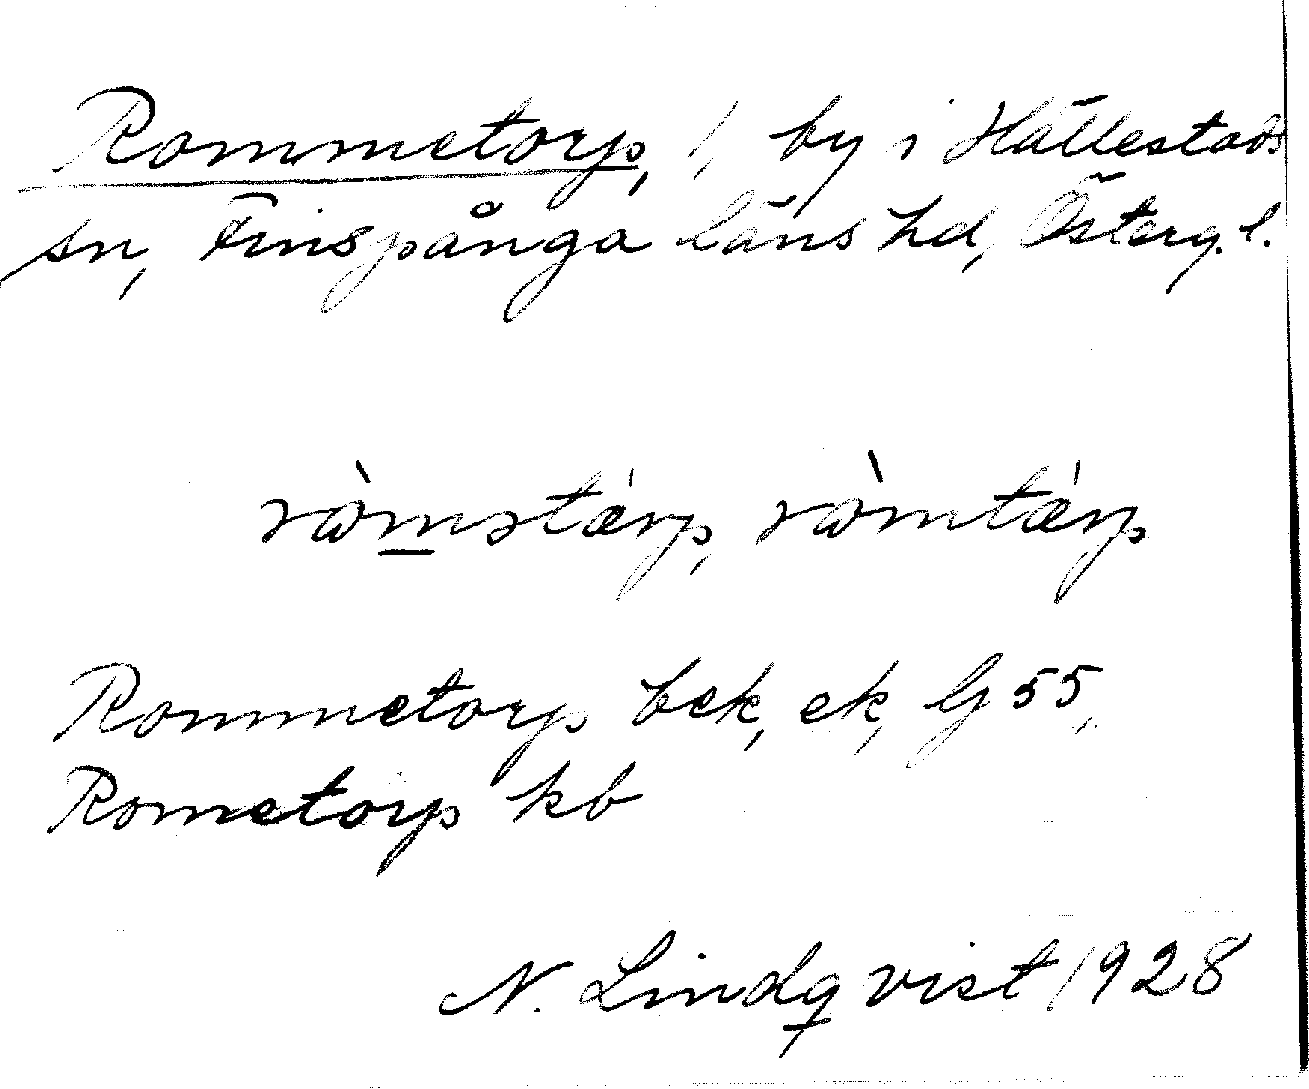 Rommetorp, 1, by i Hällestads
sn, Finspånga läns hd, Österg. l.
ròmstærp, ròmtærp
Rommetorp bek, ek, G 55,
Rometorp kb
N. Lindqvist 1928